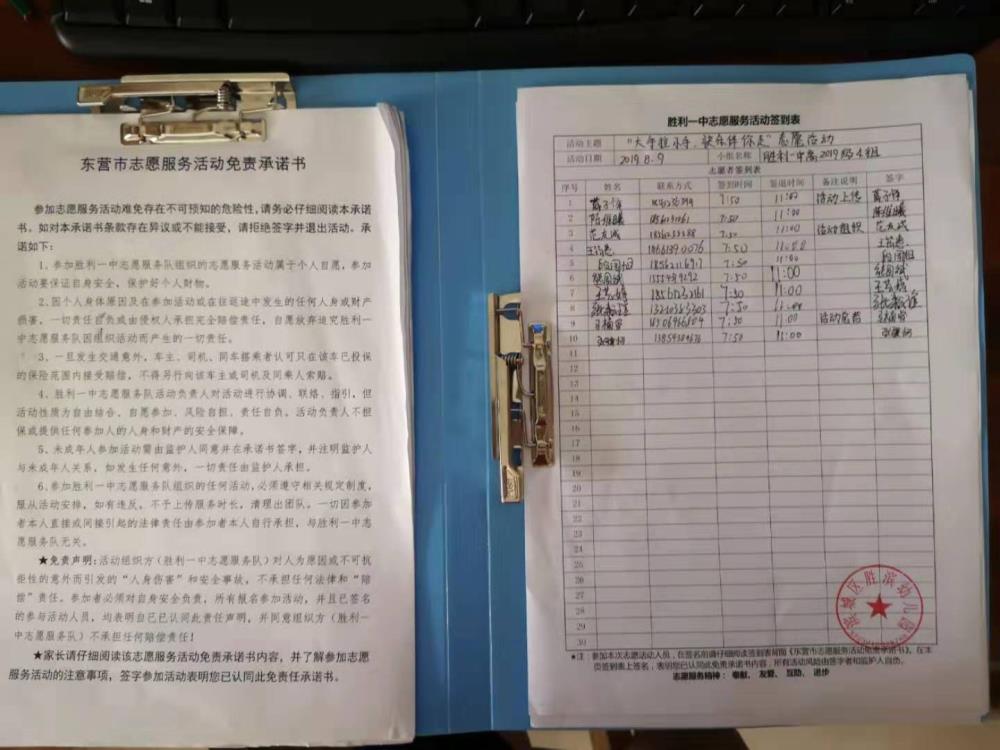 东营市志愿服务活动免责承诺书
参加志愿服务活动难免存在不可预知的危险性,请务必仔细阅读本承诺
书。如对本承诺书条款存在异议或不能接受,请拒绝签字并退出活动。承
诺如下:
1、参加胜利一中志愿服务队组织的志愿服务活动属于个人自愿,参加
活动要保证自身安全,保护好个人财物。
2、因个人身体原因及在参加活动或在往返途中发生的任何人身或财产
损害,一切责任自负或由侵权人承担完全赔偿责任,自愿放弃追究胜利一
中志愿服务队因组织活动而产生的一切责任。
3、一旦发生交通意外,车主、司机、同车搭乘者认可只在该车已投保
的保险范围内接受赔偿,不得另行向该车主或司机及同乘人索赔。
4、胜利一中志愿服务队活动负责人对活动进行协调、联络、指引,但
活动性质为自由结合、自愿参加、风险自担、责任自负。活动负责人不担
保或提供任何参加人的人身和财产的安全保障。
5、未成年人参加活动需由监护人同意并在承诺书签字,并注明监护人
与未成年人关系,如发生任何意外,一切责任由监护人承担。
6、参加胜利一中志愿服务队组织的任何活动,必须遵守相关规定制度,
服从活动安排,如有违反,不予上传服务时长,清理出团队,一切因参加
者本人直接或间接引起的法律责任由参加者本人自行承担,与胜利一中志
愿服务队无关。
★免责声明:活动组织方(胜利一中志愿服务队)对人为原因或不可抗
拒性的意外而引发的“人身伤害”和安全事故,不承担任何法律和“赔
偿”责任。参加者必须对自身安全负责,所有报名参加活动,并且已签名
的参与活动人员,均表明自己已认同此责任声明,并同意组织方(胜利一
中志愿服务队)不承担任何赔偿责任!
★家长请仔细阅读该志愿服务活动免责承诺书内容,并了解参加志愿
服务活动的注意事项,签字参加活动表明您已认同此免责任承诺书。
胜利一中志愿服务活动签到表
活动主题 “大手拉小手,快乐伴你走”志愿活动
活动日期 2019.8.9 小组名称 胜利一中高2019级4组
志愿者签到表
序号 姓名 联系方式 签到时间 签退时间 备注说明 签字
1 7:50 11:00 活动上传
2 7:50 11:00
3 范友诚 7:50 11:00 活动组织 范友诚
4 7:50 11:00
5 7:50
6 7:50 11:00
7 7:50 11:00
8 7:50 11:00
9 7:50 11:00
10 7:50 11:00
11
12
13
14
15
16
17
18
19
20
21
22
23
24
25
26
27
28
29
30
城区胜滨幼儿园
*注:参加本次志愿活动人员,在签名前请仔细阅读签到表背面《东营市志愿服务活动免责承诺书》,在本
页签到表上签名,表明您已认同此免责承诺书内容,所有活动风险由签字者和监护人自负。
志愿服务精神:奉献、友爱、互助、进步